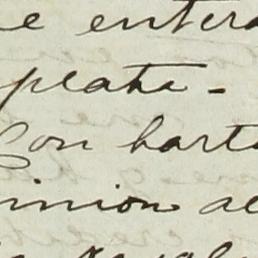 e entera
plata.-
Con harto
inion al